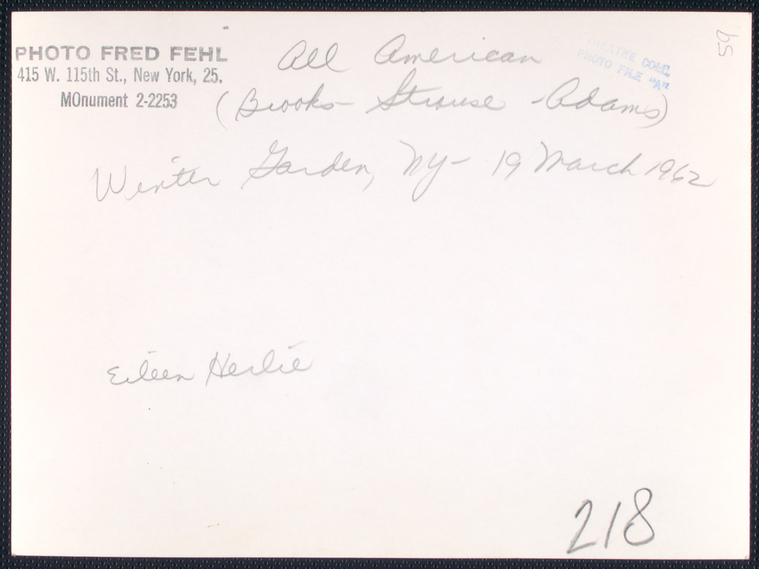 PHOTO FRED FEHL
415 W. 115th St., New York, 25.
MOnument 2-2253
All American
(Brooks - Strouse - Adams)
Winter Garden, NY - 19 March 1962
THEATRE COLL.
PHOTO FILE "A"
59
Eileen Herlie
218